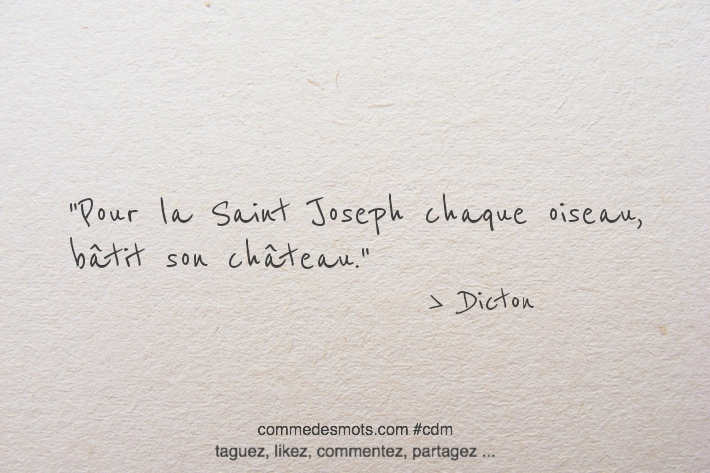 "Pour la Saint Joseph chaque oiseau,
bâtit son château."
> Dicton
commedesmots.com #cdm
taguez, likez, commentez, partagez ...